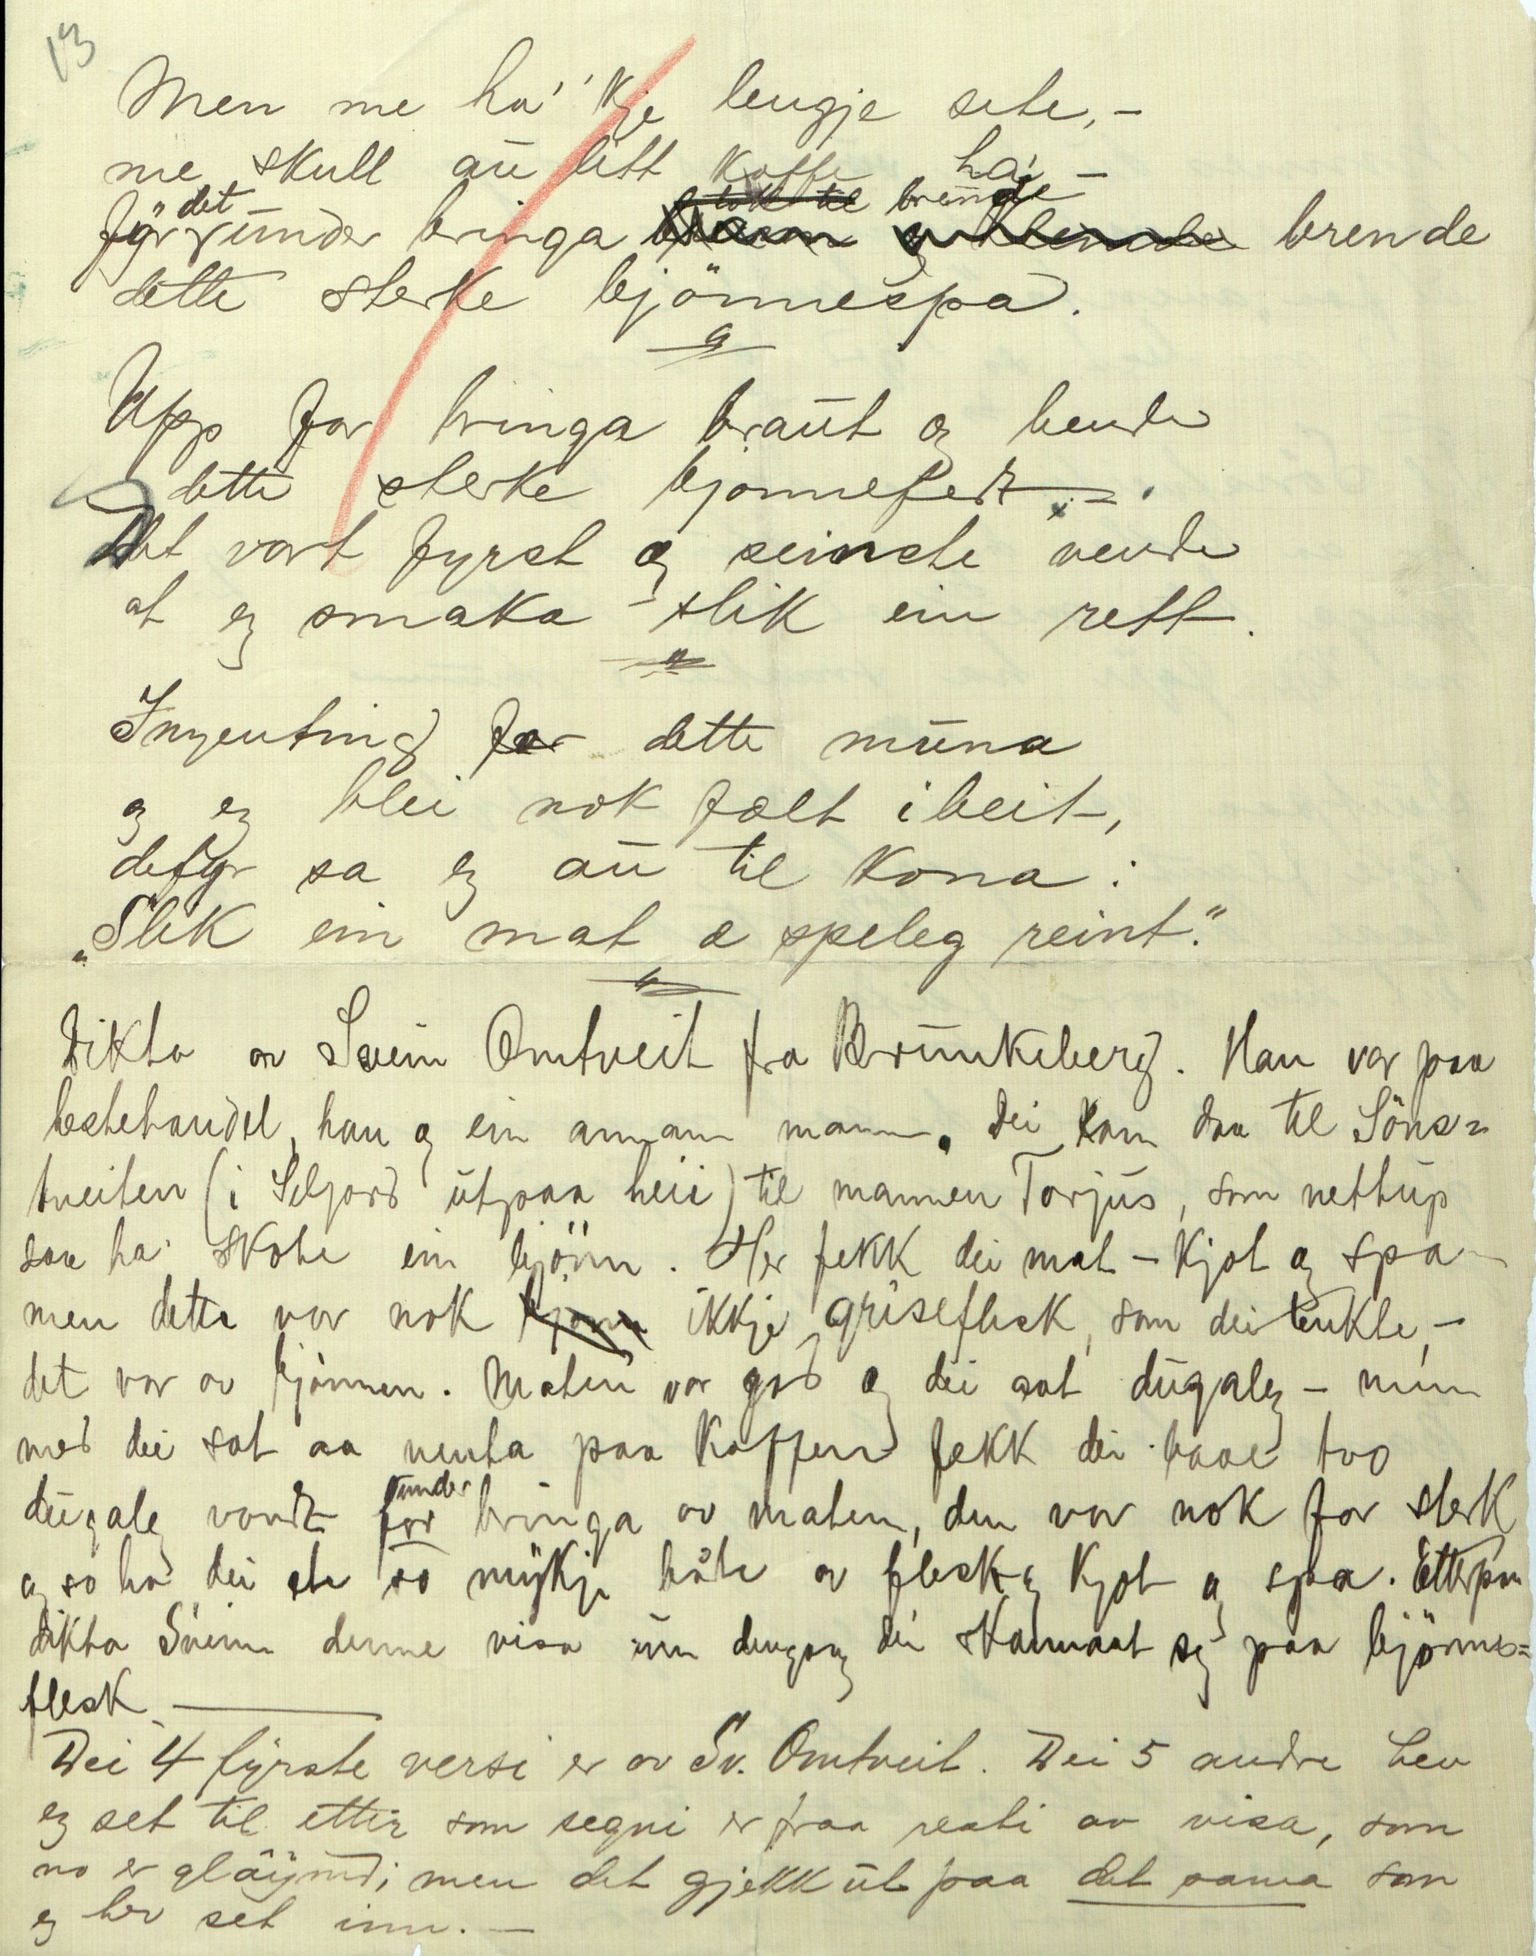 13
Men me ha' 'kje lengje sete, –
me skull au litt kaffe ha, –
tok til brende
fyr det under bringa brende
dette sterke bjönnespa.
Upp for bringa braut og bende
dette sterke bjonnefeitt –.
Det vart fyrst og seinste vende
at eg smaka slik ein rett.
Ingenting for dette muna
og eg blei nok fælt i beit,
defyr sa eg au til kona:
„Slik ein mat æ speleg reint."
Dikta av Svein Omtveit fra Brunkeberg. Han var paa
hestehandel, han og ein annan mann. Dei kom daa til Söns=
tveiten (i Seljord utpaa heii) til mannen Torjus, som nettup
daa ha' skote ein bjönn. Her fekk dei mat – kjot og spa –
men dette var nok ikkje griseflesk, som dei tenkte, –
det var av bjönnen. Maten var god og dei aat dugaleg – men
med dei sat aa venta paa kaffen fekk dei baae two
dugaleg vondt for under bringa av maten, den var nok for sterk
og so ha dei ete so mykje både av flesk og kjot og spa. Etterpaa
dikta Svein denne visa um dengang dei skamaat seg paa bjönne=
flesk. –
Dei 4 fyrste versi er av Sv. Omtveit. Dei 5 andre hev
eg set til etter som segni er fraa resti av visa, som
no er gløymd; men det gjekk ut paa det sama som
eg her set inn. –